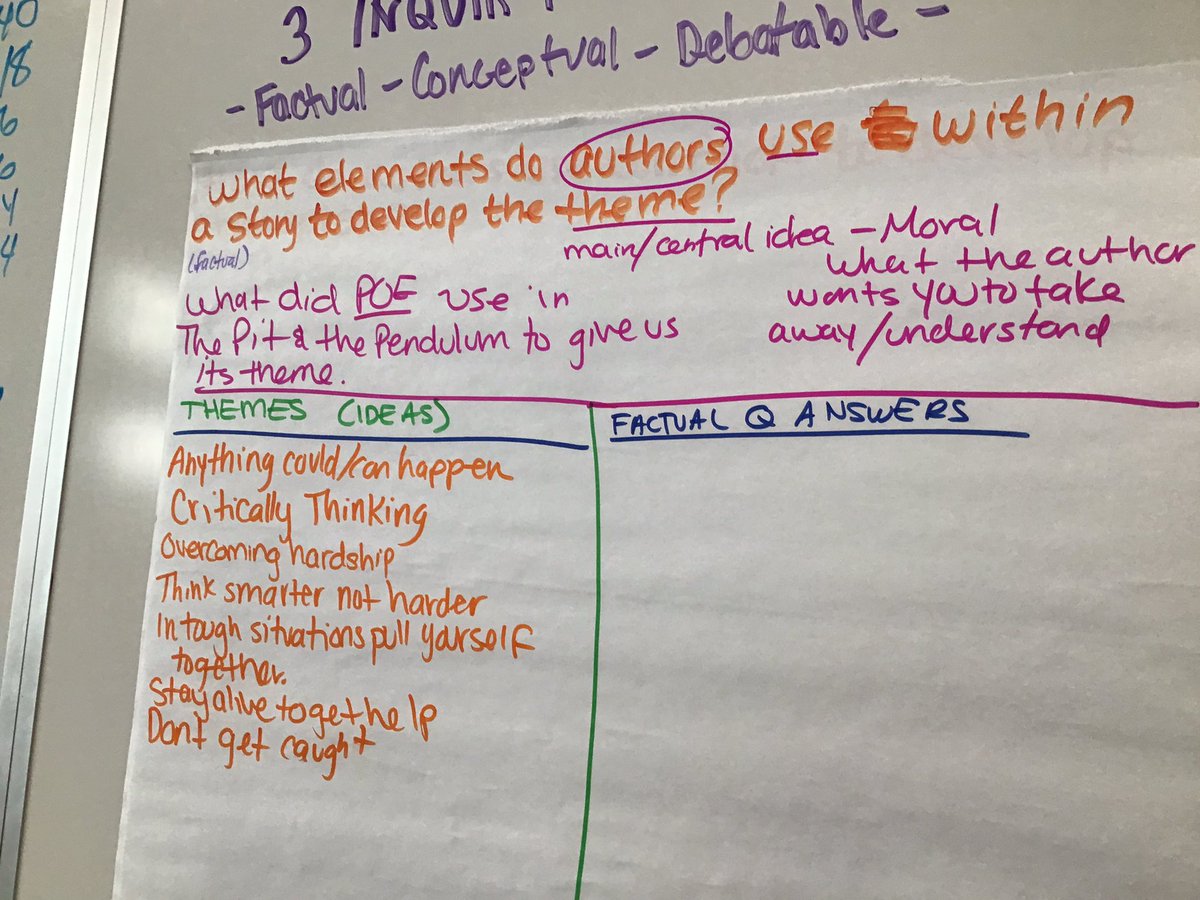 3 INQUIR
- Factual - Conceptual - Debatable -
What elements do authors use within
a story to develop the theme?
(factual)
main/central idea - Moral
what the author
wants you to take
away/understand
What did POE use in
The Pit & the Pendulum to give us
its theme.
THEMES (IDEAS)
Anything could/can happen
Critically Thinking
Overcoming hardship
Think smarter not harder
In tough situations pull yourself
together.
Stay alive to get help
Dont get caught
FACTUAL Q ANSWERS
40
18
6
6
4
4